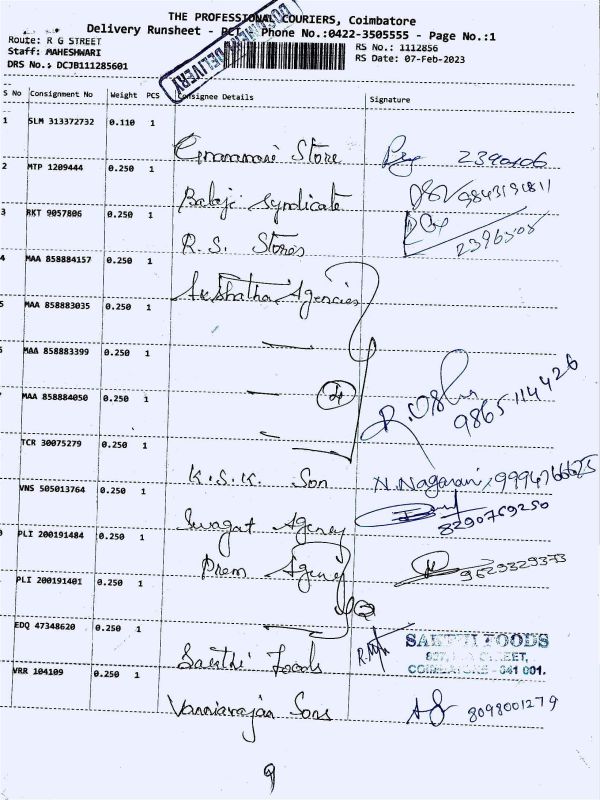 THE PROFESSIONAL COURIERS, Coimbatore
Delivery Runsheet - PCL Phone No.:0422-3505555 - Page No.:1
Route: R G STREET
RS No.: 1112856
Staff: MAHESHWARI
RS Date: 07-Feb-2023
DRS No.: DCJB111285601
DELIVERY
S No Consignment No Weight PCS Consignee Details Signature
1 SLM 313372732 0.110 1
Store 2390406
2 MTP 1209444 0.250 1
Balaji Syndicate 9843191811
3 RKT 9057806 0.250 1
R.S. Stores 2396505
4 MAA 858884157 0.250 1
Akshatha Agencies
5 MAA 858883035 0.250 1
MAA 858883399 0.250 1
4
MAA 858884050 0.250 1
9865114426
TCR 30075279 0.250 1
K.S.K. Son N.Nagarani, 9994766625
VNS 505013764 0.250 1
Swagat Agency 8290769250
PLI 200191484 0.250 1
Prem Agency 9629329373
PLI 200191401 0.250 1
2
EDQ 47348620 0.250 1
Sakthi Foods
SAKTHI FOODS
STREET,
COIMBATORE - 641 001.
VRR 104109 0.250 1
Vanniarajan Sons 8098001279
9